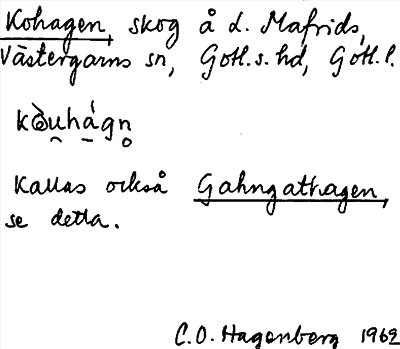 Kohagen, skog å d. Mafrids,
Västergarns sn, Gotl. s. hd, Gotl. l.
kòu̯há̱gn̥
Kallas också Gahngathagen,
se detta.
C.O. Hagenberg 1962